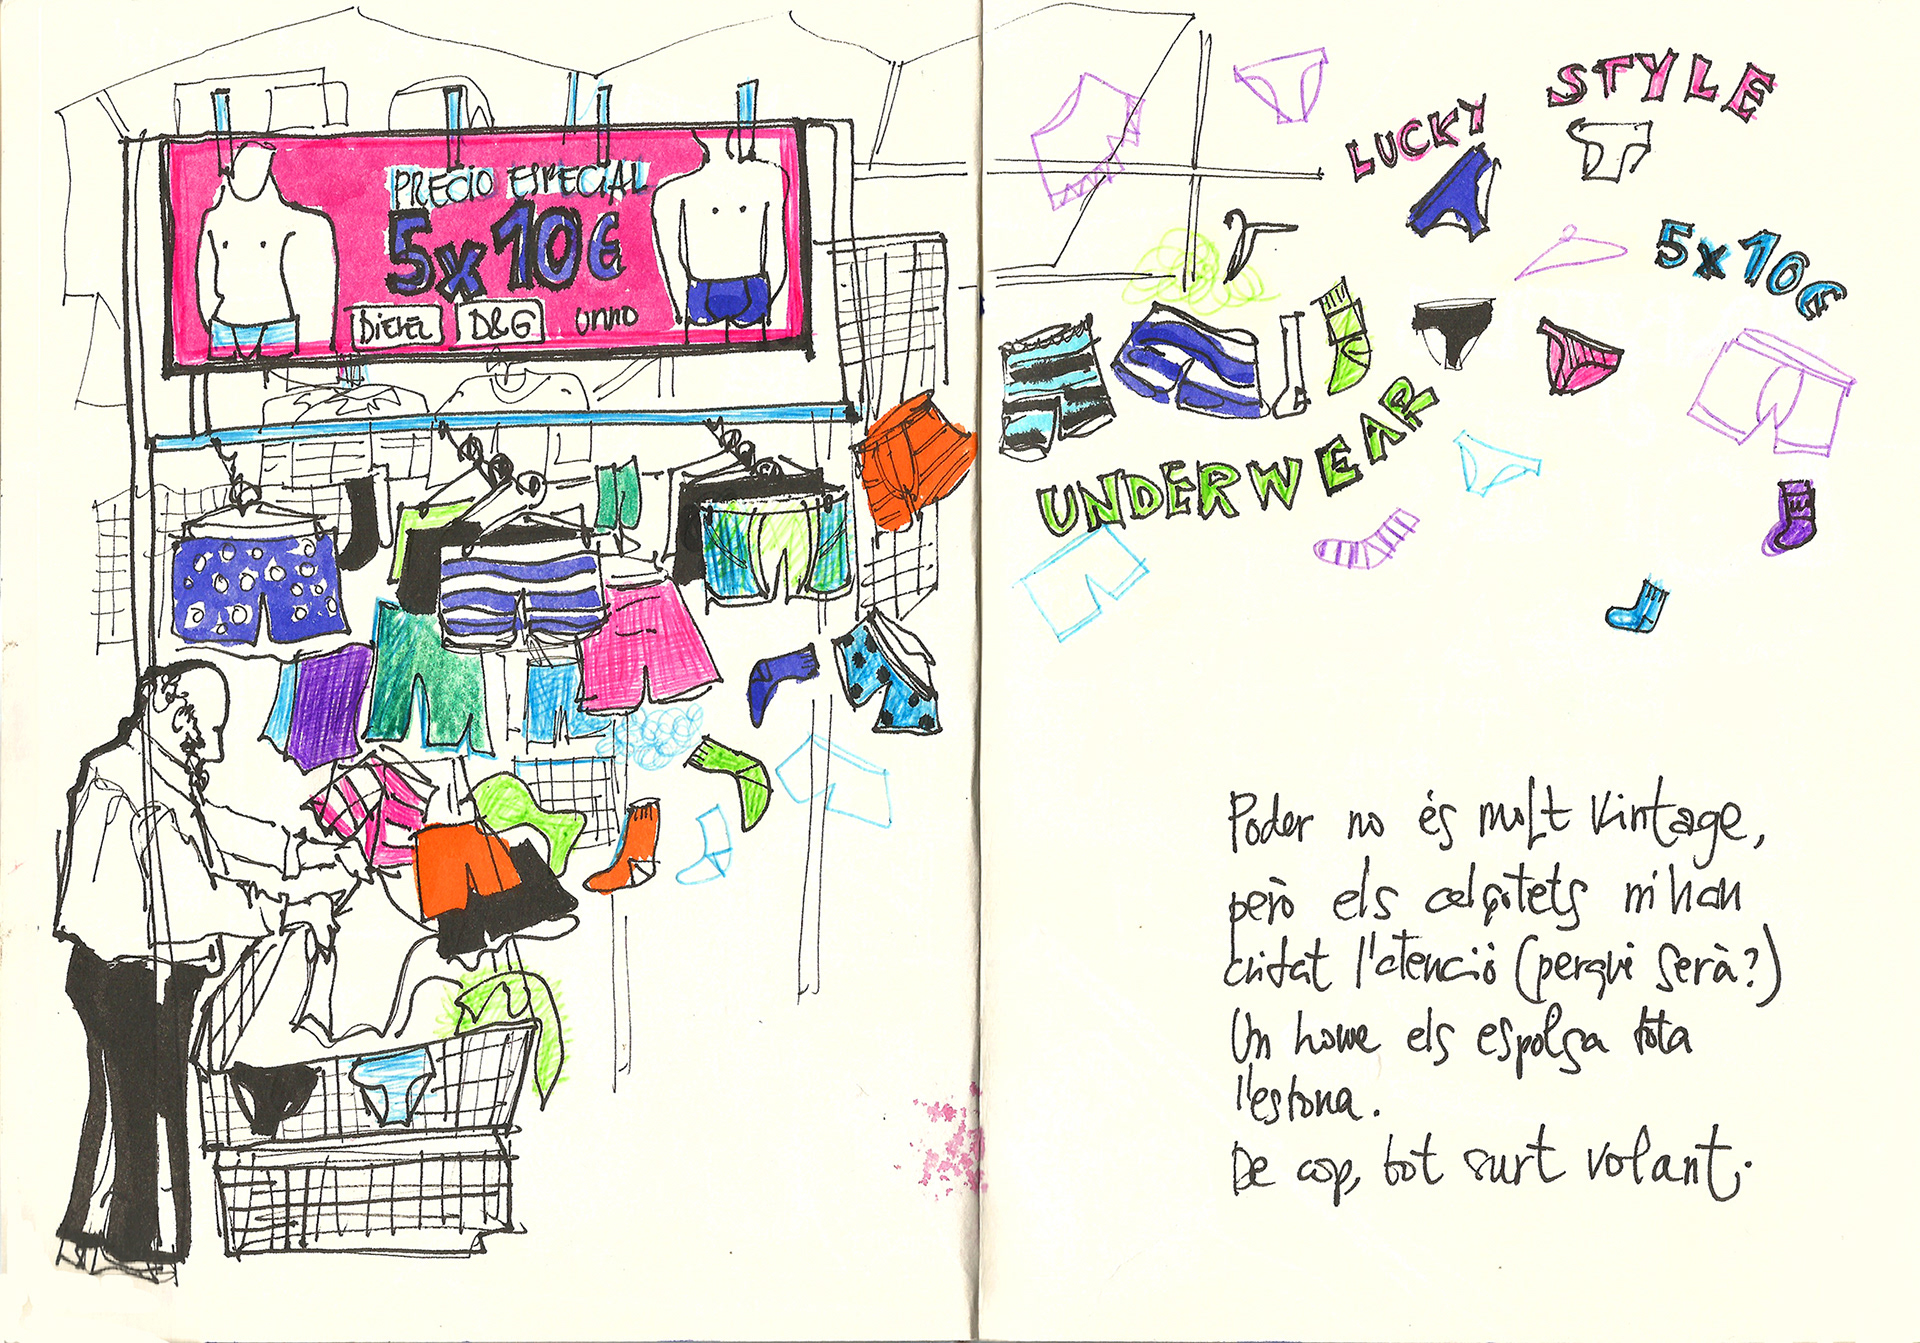 PRECIO ESPECIAL
5x10€
DIESEL D&G UNNO
STYLE
LUCKY
5x10€
UNDERWEAR
Poder no és molt vintage,
però els calçotets m'han
cridat l'atenció (perquè serà?)
Un home els espolsa tota
l'estona.
De cop, tot surt volant.